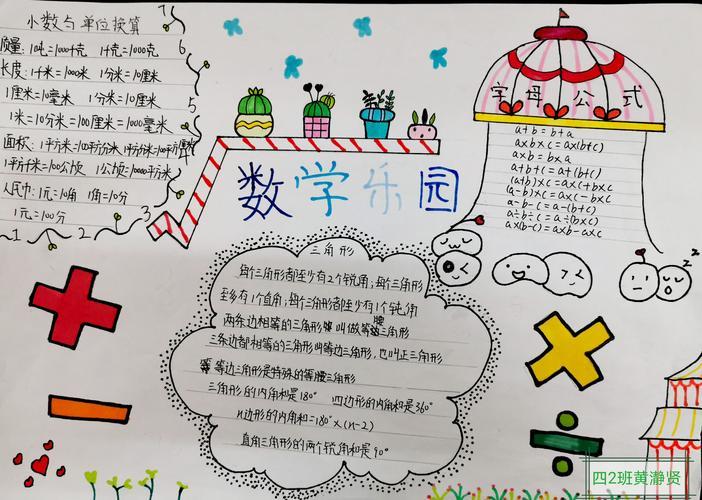 小数与单位换算
质量：1吨=1000千克 1千克=1000克
长度：1千米=1000米 1分米=10厘米
1厘米=10毫米 1分米=10厘米
1米=10分米=100厘米=1000毫米
面积：1平方米=100平方分米 1平方分米=100平方厘米
1平方千米=100公顷 1公顷=10000平方米
人民币：1元=10角 1角=10分
1元=100分
1 2 3 5 6 7
数学乐园
字母公式
a+b=b+a
a×b×c=a×(b+c)
a×b=b×a
a+b+c=a+(b+c)
(a+b)×c=a×c+b×c
(a-b)×c=a×c-b×c
a-b-c=a-(b+c)
a÷b÷c=a÷(b×c)
a×(b-c)=a×b-a×c
z z
三角形
每个三角形都至少有2个锐角；每个三角形
至多有1个直角；每个三角形都至少有1个钝角
两条边相等的三角形叫做等腰三角形
三条边都相等的三角形叫等边三角形，也叫正三角形
等边三角形是特殊的等腰三角形
三角形的内角和是180° 四边形的内角和是360°
n边形的内角和=180°×(n-2)
直角三角形的两个锐角和是90°
四2班黄瀞贤